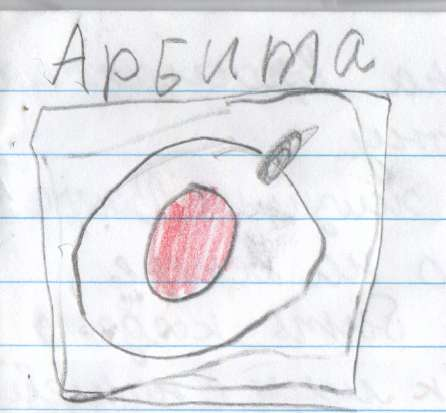 Арбита